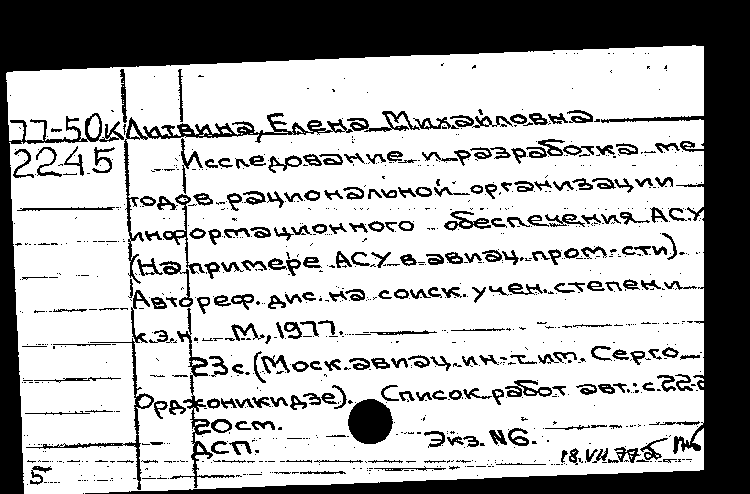 77-50к Литвина, Елена Михайловна
2245 Исследование и разработка ме-
тодов рациональной организации
информационного обеспечения АСУ
(На примере АСУ в авиац. пром-сти).
Автореф. дис. на соиск. учен. степени
к.э.н. М., 1977.
23 с. (Моск. авиац. ин-т им. Серго
Орджоникидзе). Список работ авт.: с.22
20 см.
ДСП. Экз. №6.
18.VII.77
5